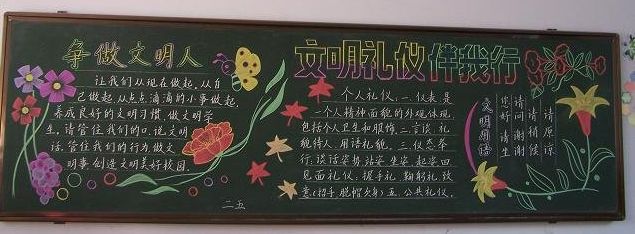 争做文明人
让我们从现在做起，从自
己做起，从点点滴滴的小事做起，
养成良好的文明习惯，做文明学
生，请管住我们的口，说文明
话，管住我们的行为，做文
明事，创造文明美好校园。
二五
文明礼仪伴我行
个人礼仪：一、仪表是
一个人精神面貌的外观体现，
包括个人卫生和服饰，二、言谈：礼
貌待人，用语礼貌，三、仪态举
行：谈话姿势 站姿 坐姿 起姿 四
见面礼仪：握手礼 鞠躬礼 致
意（招手 脱帽 欠身）五、公共礼仪。
文明用语
您好 请坐
请问 谢谢
请稍候
请原谅